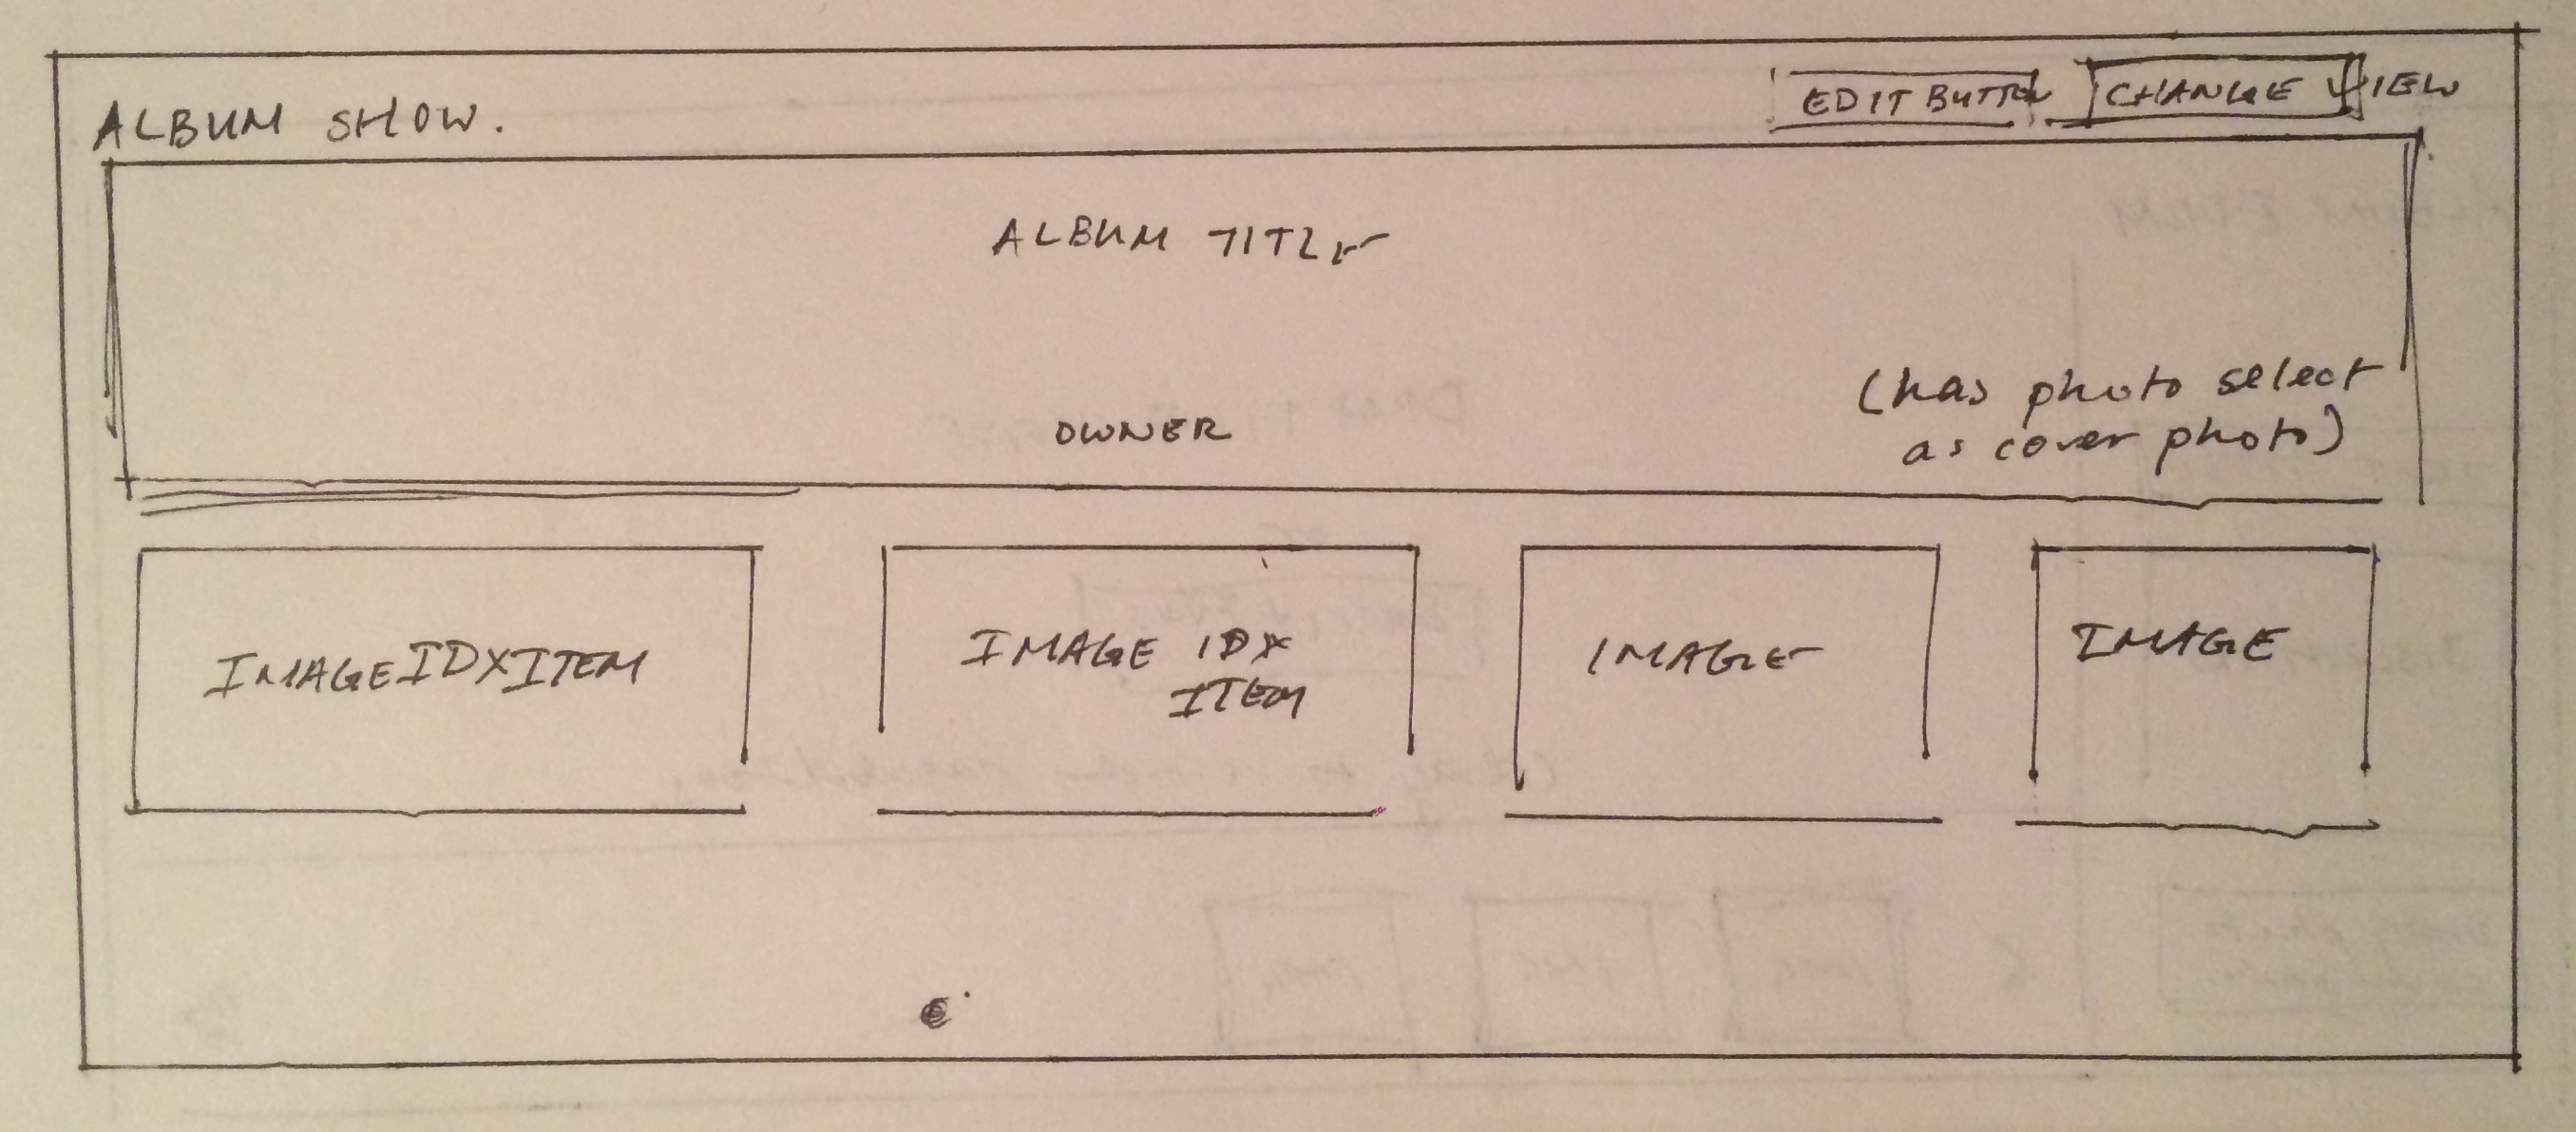 ALBUM SHOW.
EDIT BUTTON
CHANGE VIEW
ALBUM TITLE
OWNER
(has photo select
as cover photo)
IMAGEIDXITEM
IMAGE IDX
ITEM
IMAGE
IMAGE